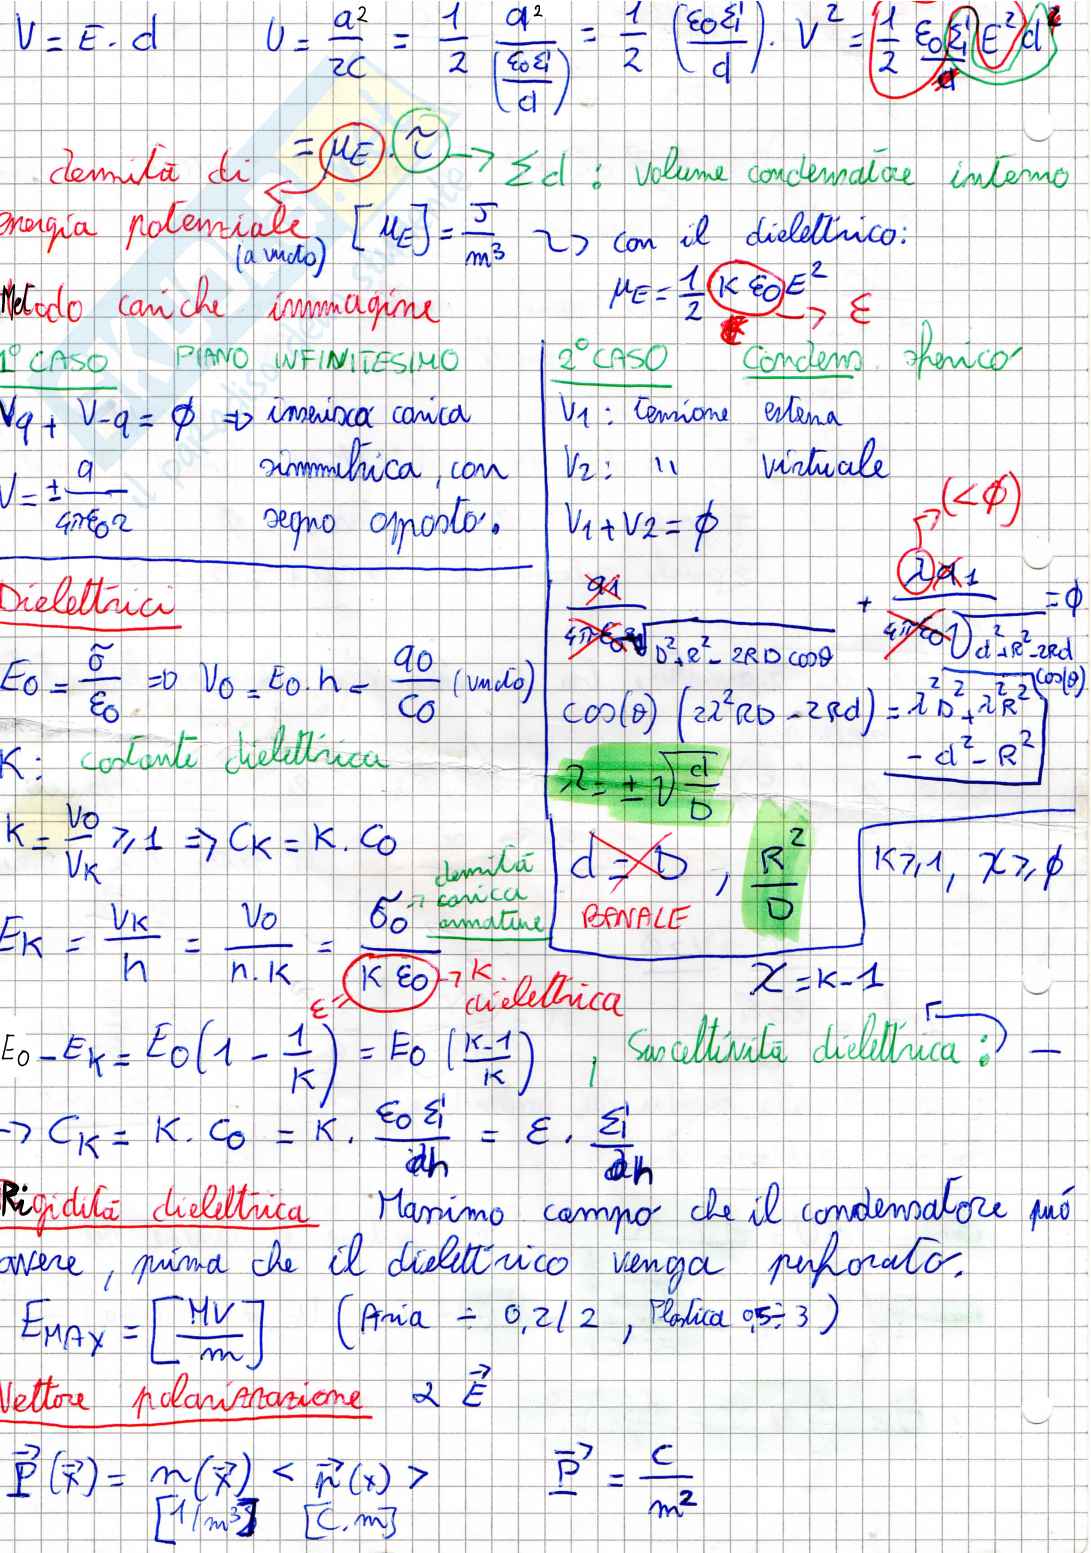 V = E · d    U = q²/2C = 1/2 q²/(ε0Σ/d) = 1/2 (ε0Σ/d) · V² = 1/2 ε0Σ/d E² d²
= μE · τ → Σd : volume condensatore interno
densità di
energia potenziale (a vuoto) [μE] = J/m³ ~> con il dielettrico:
μE = 1/2 K ε0 E² → ε
Metodo cariche immagine
1° CASO PIANO INFINITESIMO
Vq + V-q = ϕ => inserisca carica
simmetrica, con
V = ± q/4πε0r
segno opposto.
2° CASO Condens. sferico
V1 : tensione esterna
V2 : " virtuale
V1 + V2 = ϕ
(<ϕ)
q1/4πε0√D²+R²-2RDcosθ + λq1/4πε0√d²+R²-2Rdcos(θ) = ϕ
cos(θ) (2λ²RD - 2Rd) = λ²D² + λ²R² - d² - R²
λ = ± √d/D
d = D , R²/D
BANALE
K ≥ 1, χ ≥ ϕ
Dielettrici
E0 = σ/ε0 => V0 = E0 · h = q0/C0 (vuoto)
K : costante dielettrica
K = V0/VK ≥ 1 => CK = K · C0
EK = VK/h = V0/h·K = σ0/K ε0
densità
carica
armature
ε
→ K dielettrica
χ = K-1
E0 - EK = E0 (1 - 1/K) = E0 (K-1/K) , Suscettività dielettrica : —
-> CK = K · C0 = K · ε0 Σ/h = ε · Σ/h
Rigidità dielettrica Massimo campo che il condensatore può
avere, prima che il dielettrico venga perforato.
EMAX = [MV/m] (Aria ÷ 0,2/2 , Plastica 0,5÷3)
Vettore polarizzazione 2 E⃗
P⃗(x⃗) = n(x⃗) < p⃗(x) >    P⃗ = C/m²
[1/m³] [C·m]